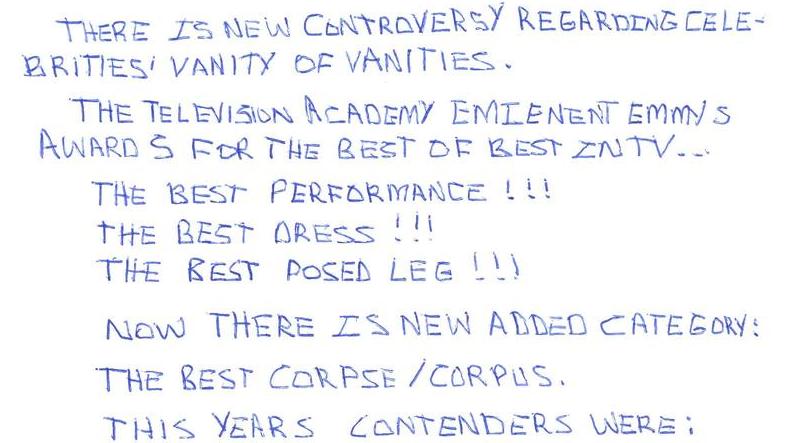 THERE IS NEW CONTROVERSY REGARDING CELE-
BRITIES' VANITY OF VANITIES.
THE TELEVISION ACADEMY EMIENENT EMMY'S
AWARDS FOR THE BEST OF BEST IN TV...
THE BEST PERFORMANCE !!!
THE BEST DRESS !!!
THE BEST POSED LEG !!!
NOW THERE IS NEW ADDED CATEGORY:
THE BEST CORPSE/CORPUS.
THIS YEARS CONTENDERS WERE: